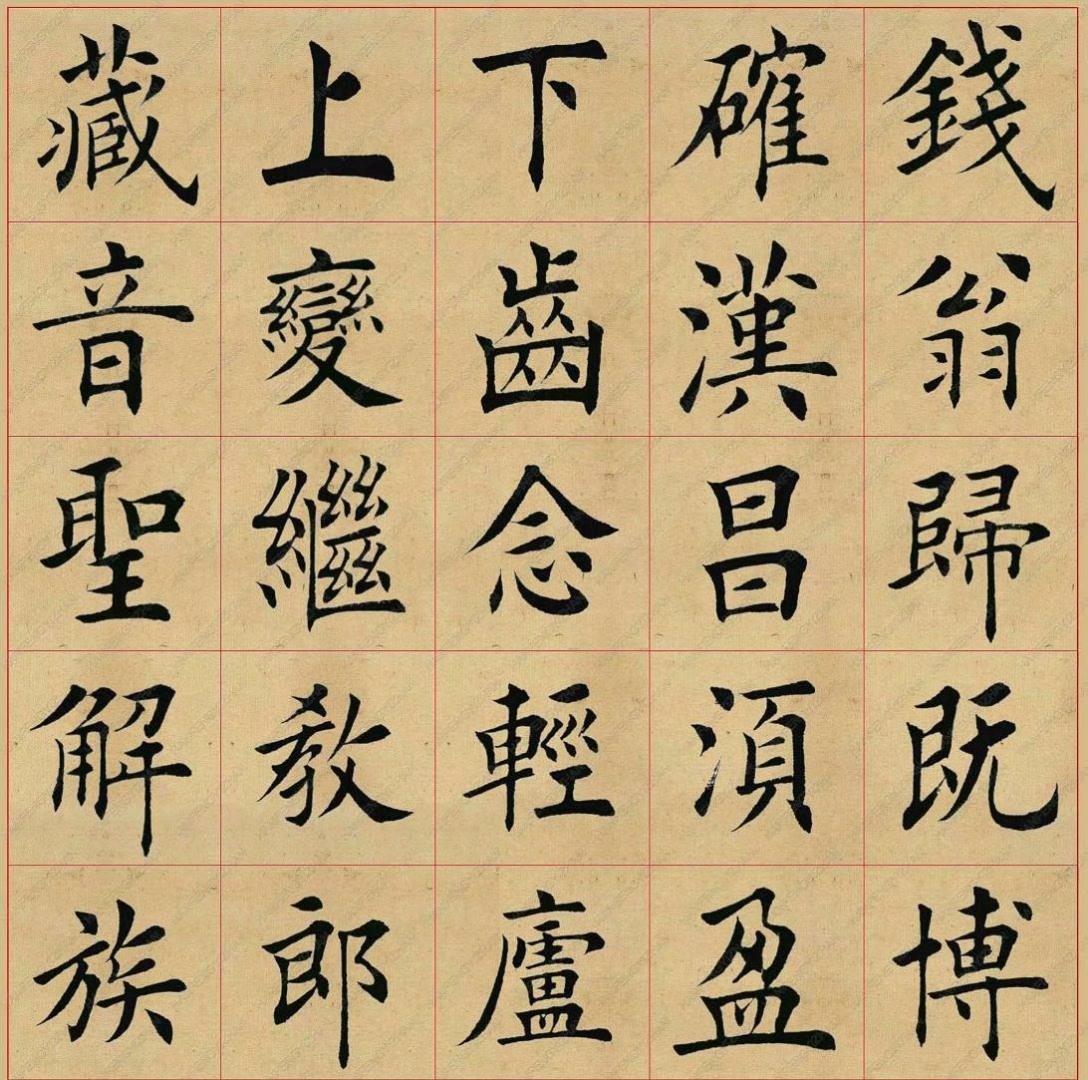 藏上下確錢
音變齒漢翁
聖繼念昌歸
解教輕湏既
族郎廬盈博